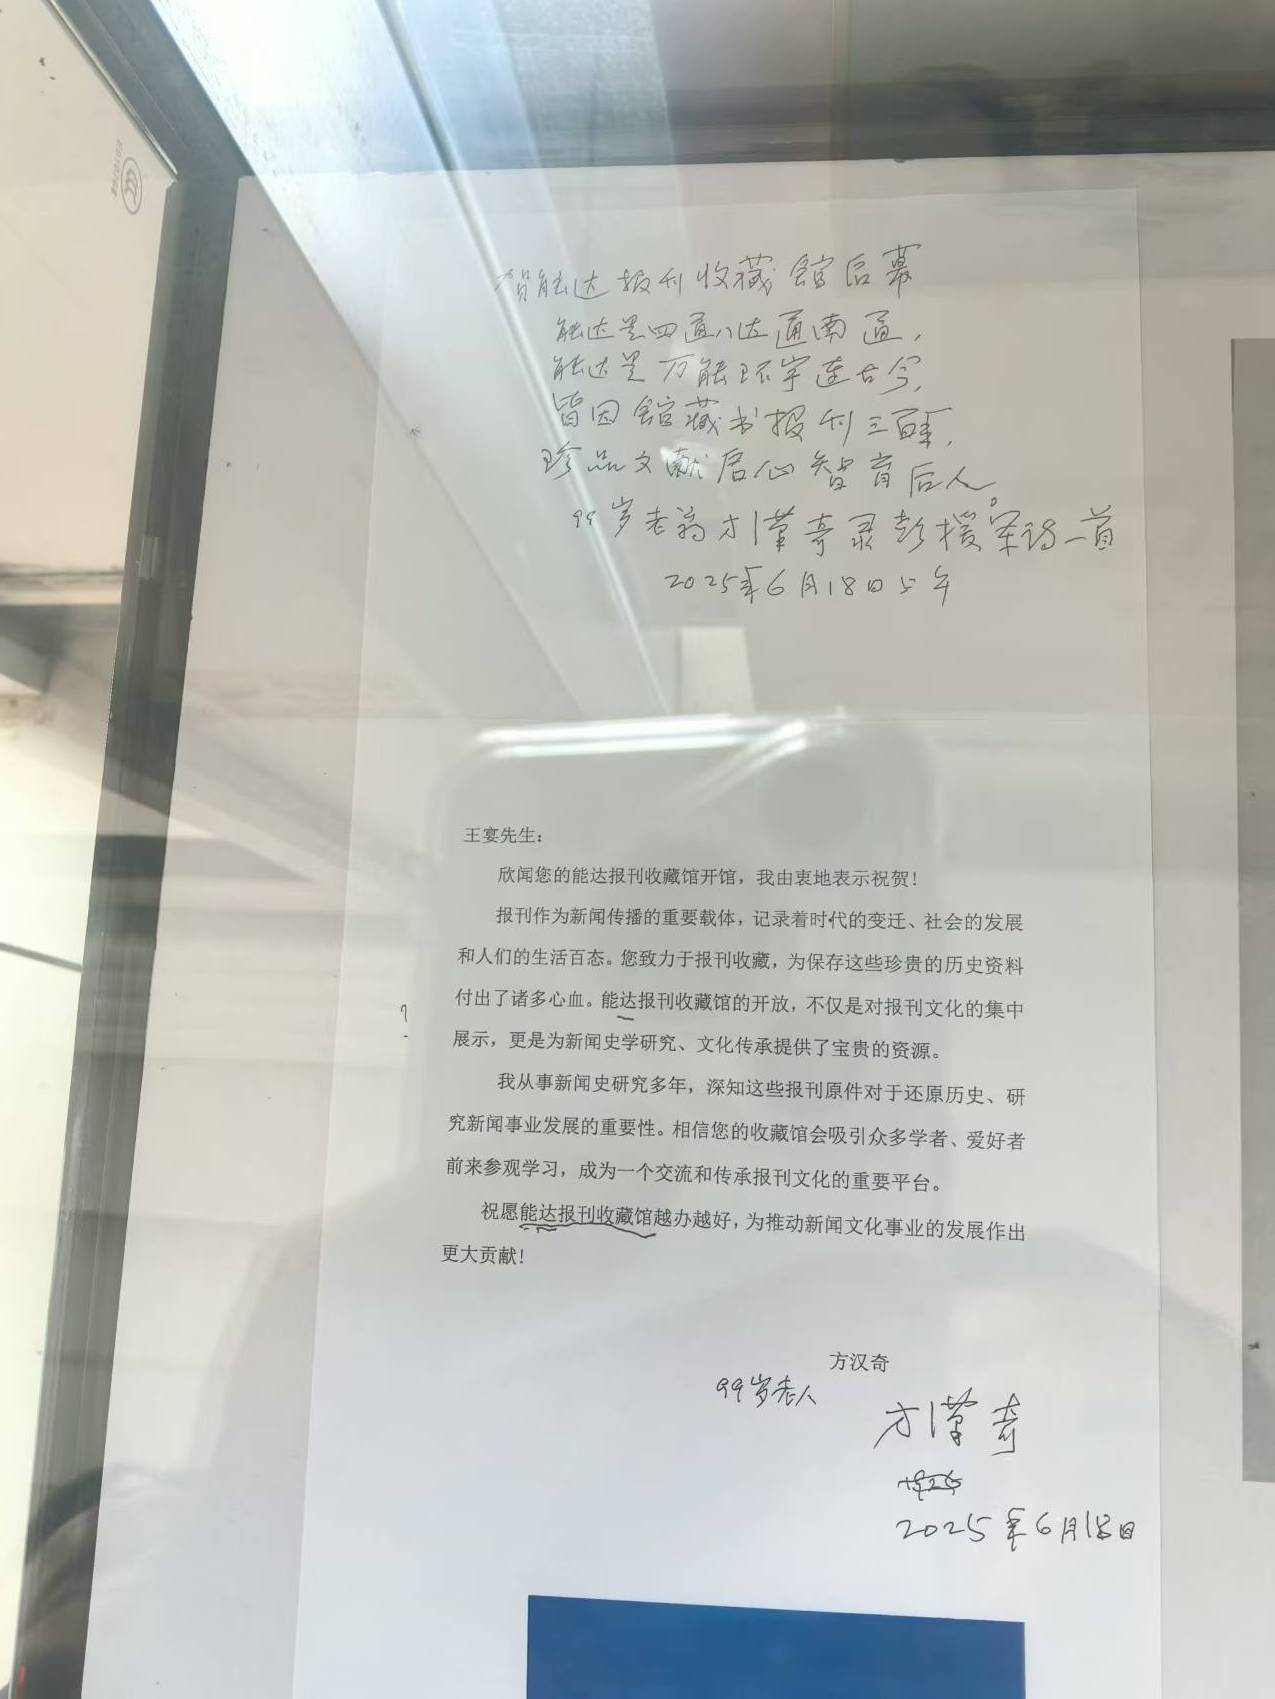 贺能达报刊收藏舘启幕
能达是四通八达通南通,
能达是万能环宇连古今,
皆因舘藏书报刊三百年,
珍品文献启心智育后人。
99岁老翁方漢奇录彭援军诗一首
2025年6月18日上午
王宴先生:
欣闻您的能达报刊收藏馆开馆，我由衷地表示祝贺！
报刊作为新闻传播的重要载体，记录着时代的变迁、社会的发展
和人们的生活百态。您致力于报刊收藏，为保存这些珍贵的历史资料
付出了诸多心血。能达报刊收藏馆的开放，不仅是对报刊文化的集中
展示，更是为新闻史学研究、文化传承提供了宝贵的资源。
我从事新闻史研究多年，深知这些报刊原件对于还原历史、研
究新闻事业发展的重要性。相信您的收藏馆会吸引众多学者、爱好者
前来参观学习，成为一个交流和传承报刊文化的重要平台。
祝愿能达报刊收藏馆越办越好，为推动新闻文化事业的发展作出
更大贡献！
方汉奇
99岁老人
方漢奇
2025年6月18日